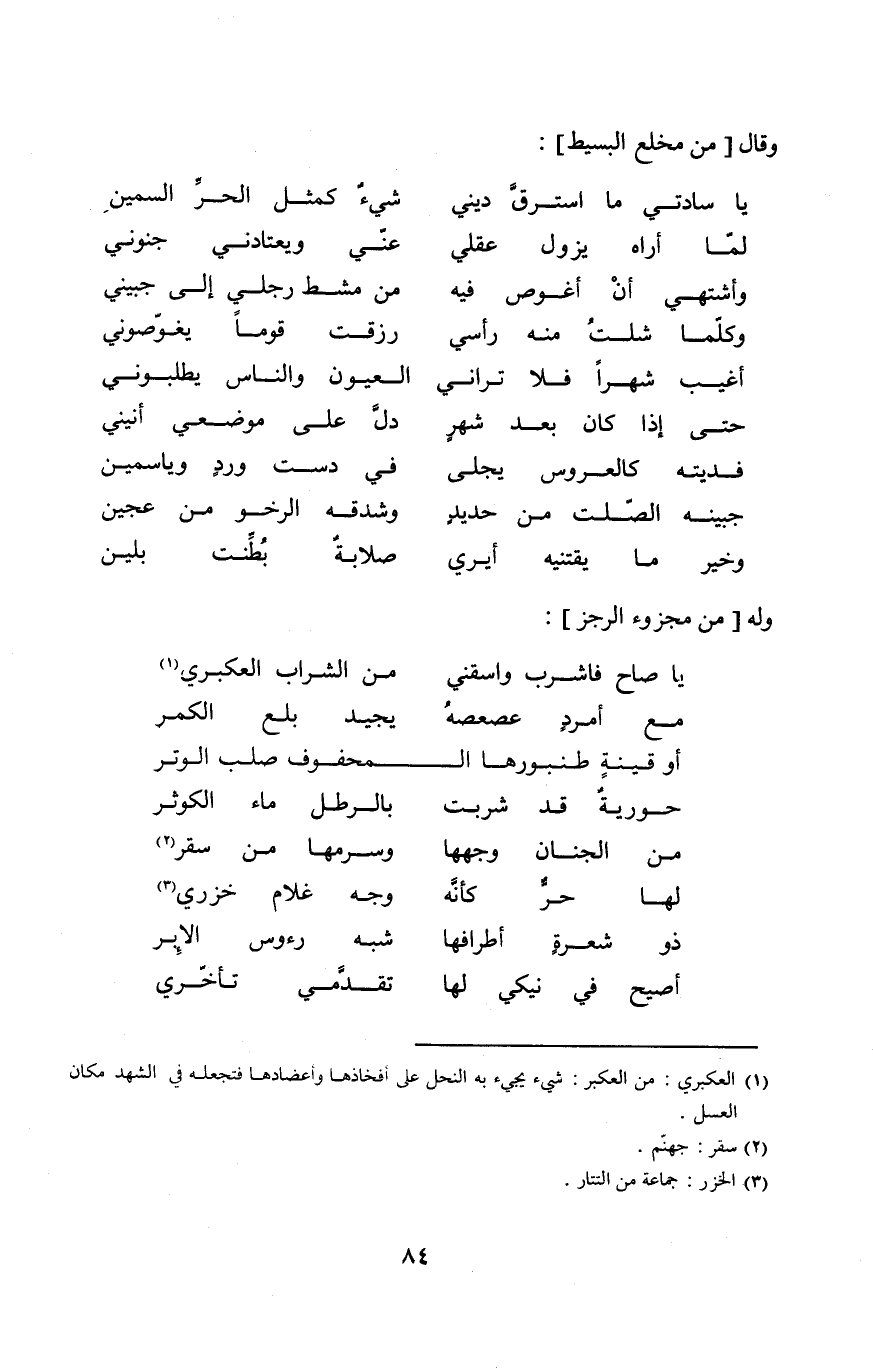 وقال [ من مخلع البسيط ] :
يا سادتي ما استرقَّ ديني شيءٌ كمثل الحرِّ السمينِ
لمّا أراه يزول عقلي عنّي ويعتادني جنوني
وأشتهي أنْ أغوص فيه من مشط رجلي إلى جبيني
وكلّما شلتُ منه رأسي رزقت قوماً يغوّصوني
أغيب شهراً فلا تراني العيون والناس يطلبوني
حتى إذا كان بعد شهرٍ دلَّ على موضعي أنيني
فديته كالعروس يجلى في دست وردٍ وياسمين
جبينه الصّلت من حديدٍ وشدقه الرخو من عجين
وخير ما يقتنيه أيري صلابةٌ بُطِّنت بلين
وله [ من مجزوء الرجز ] :
يا صاح فاشرب واسقني من الشراب العكبري(١)
مع أمردٍ عصعصهُ يجيد بلع الكمر
أو قينةٍ طنبورها الـمحفوف صلب الوتر
حوريةٌ قد شربت بالرطل ماء الكوثر
من الجنان وجهها وسرمها من سقر(٢)
لها حرٌّ كأنَّه وجه غلام خزري(٣)
ذو شعرةٍ أطرافها شبه رءوس الإبر
أصيح في نيكي لها تقدَّمي تأخّري
(١) العكبري : من العكبر : شيء يجيء به النحل على أفخاذها وأعضادها فتجعله في الشهد مكان
العسل .
(٢) سقر : جهنّم .
(٣) الخزر : جماعة من التتار .
٨٤